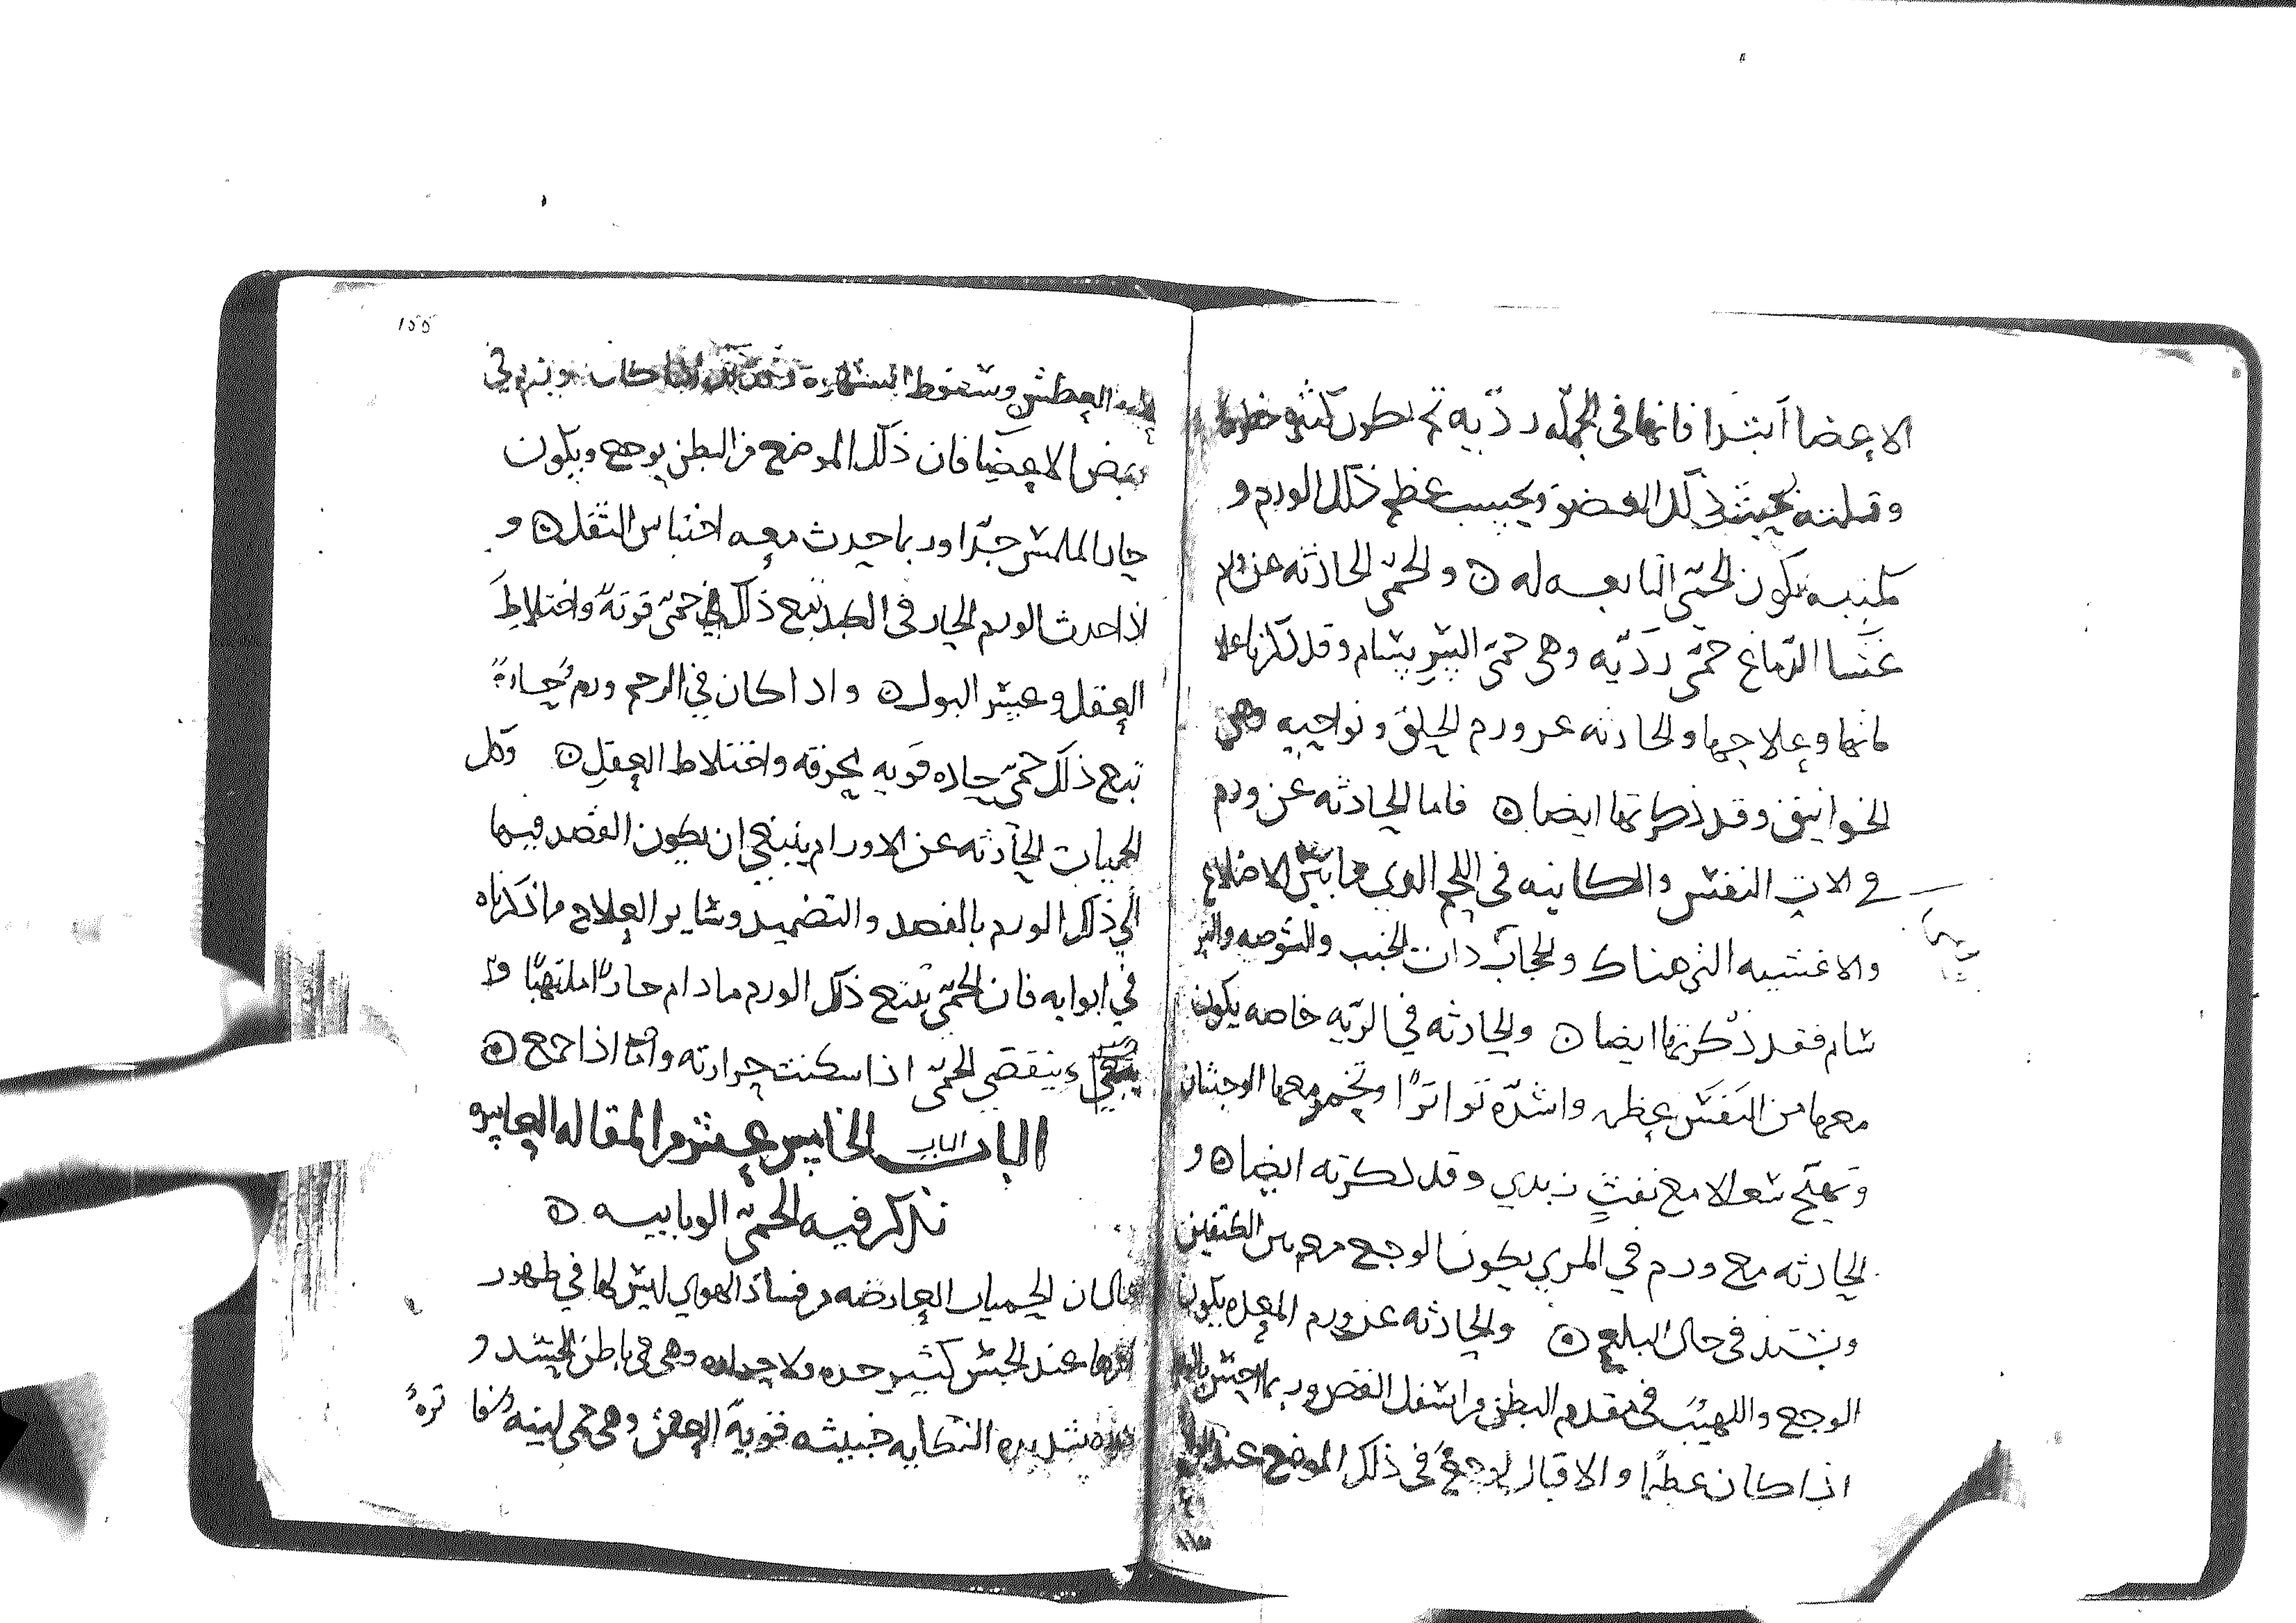 الاعضا ابتدا فانها في الجمله رديه ثم تكون كثره خطرها
وقلته بحسب ذلك العضو وبحسب عظم ذلك الورم و
تكون الحمى التابعه له ه والحمى الحادثه عن ورم
غشا الدماغ حمى رديه وهي حمى البرسام وقد ذكرنا علا
ماتها وعلاجها والحادثه عن ورم الحلق ونواحيه وهي
الخوانيق وقد ذكرتها ايضا ه فاما الحادثه عن ورم
في الات النفس والكاينه في اللحم الدي فيما بين الاضلاع
والاغشيه التي هناك والحجاب دات الجنب والشوصه والبر
سام فقد ذكرتها ايضا ه والحادثه في الريه خاصه يكون
معها من النفس عظم واشده تواترا وتحمر معها الوجنتان
وتهيج سعالا مع نفث زبدي وقد ذكرته ايضا ه و
الحادثه مع ورم في المري يكون الوجع معه بين الكتفين
ويشتد في حال البلع ه والحادثه عن ورم المعده يكون
الوجع واللهيب في مقدم البطن من اسفل القص وربما احس بالورم
اذا كان عظيما والاقبال لوجع في ذلك الموضع عند
155
العطش وسقوط الشهوه كان ورم في
بعض الامعا فان ذلك الموضع من البطن يوجع ويكون
حار الملمس جدا وربما حدث معه احتباس الثفل ه و
اذا حدث الورم الحار في الكبد تبع ذلك حمى قويه واختلاط
العقل وعسر البول ه واذا كان في الرحم ورم حاد
تبع ذلك حمى حاده قويه محرقه واختلاط العقل ه وكل
الحميات الحادثه عن الاورام ينبغي ان يكون القصد فيها
الي ذلك الورم بالفصد والتضميد وساير العلاج ما ذكرناه
في ابوابه فان الحمى تتبع ذلك الورم ما دام حارا ملتهبا و
وينقضي الحمى اذا سكنت حرارته واما اذا جمع ه
الباب الخامس عشر من المقاله العاشره
نذكر فيه الحمى الوبائيه ه
قال ان الحميات العارضه من فساد الهوي ليس لها في ظهور
امرها عند الحس كثير حده ولا حراره وهي في باطن الجسد و
شديده النكايه خبيثه قوية العفن وهي حمى لينه